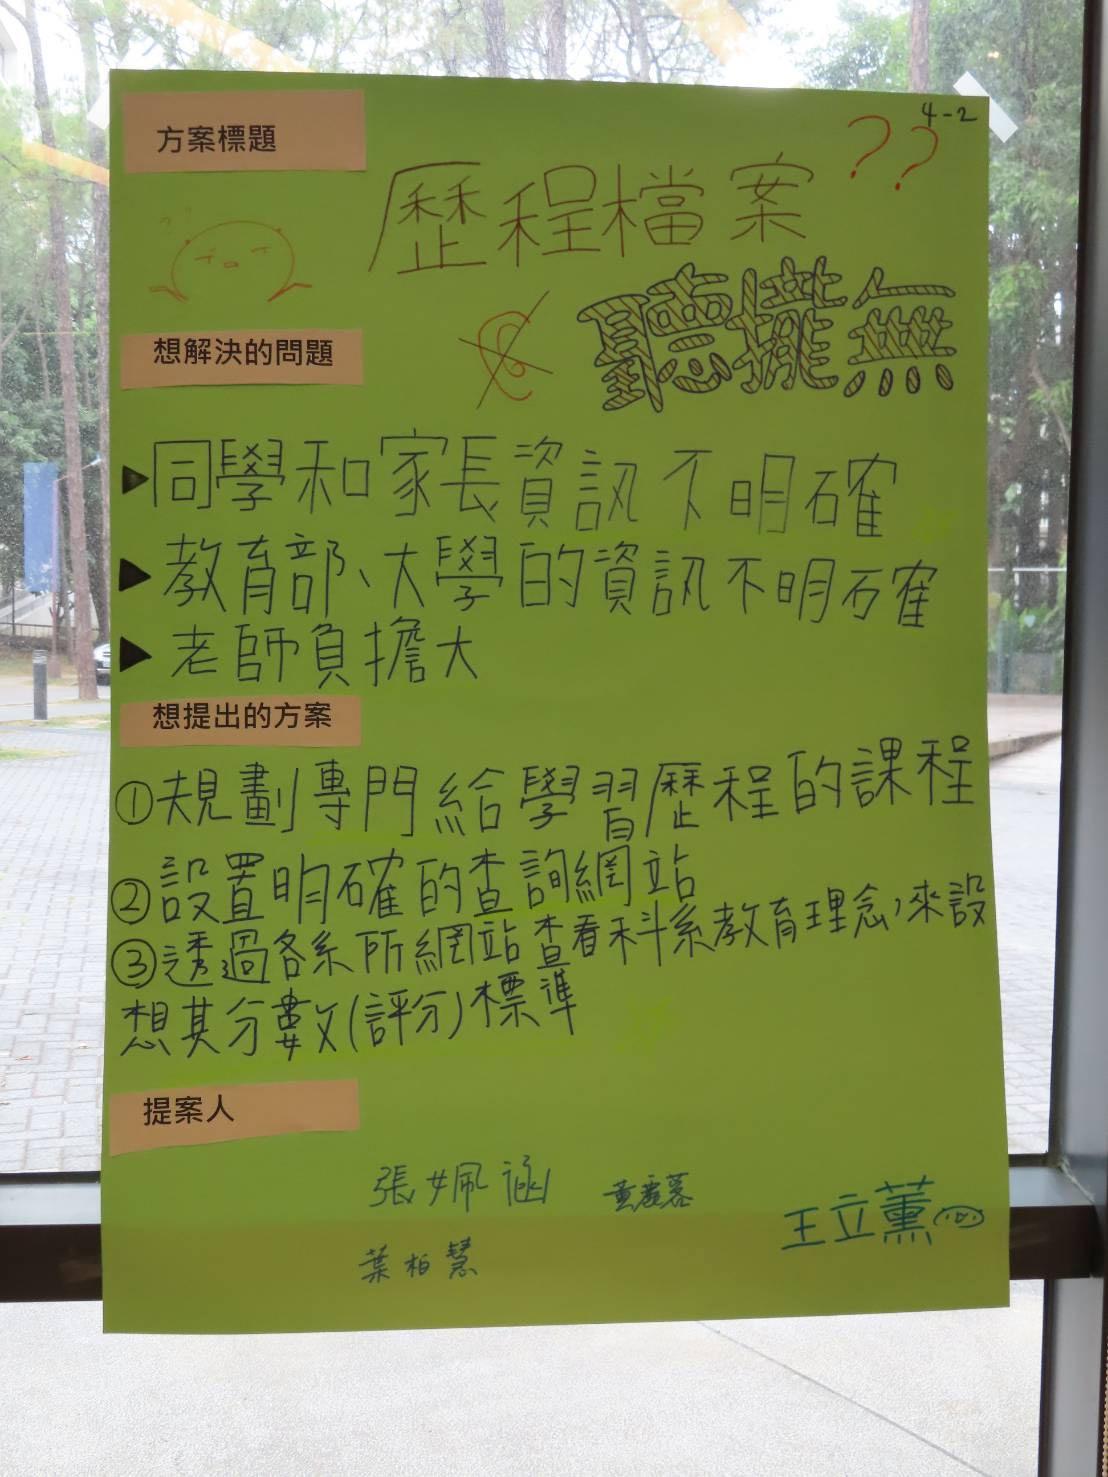 4-2
方案標題
歷程檔案??
聽攏無
想解決的問題
▶同學和家長資訊不明確
▶教育部、大學的資訊不明確
▶老師負擔大
想提出的方案
①規劃專門給學習歷程的課程
②設置明確的查詢網站
③透過各系所網站查看科系教育理念,來設
想其分數(評分)標準
提案人
張姵涵
王立薰
葉柏慧